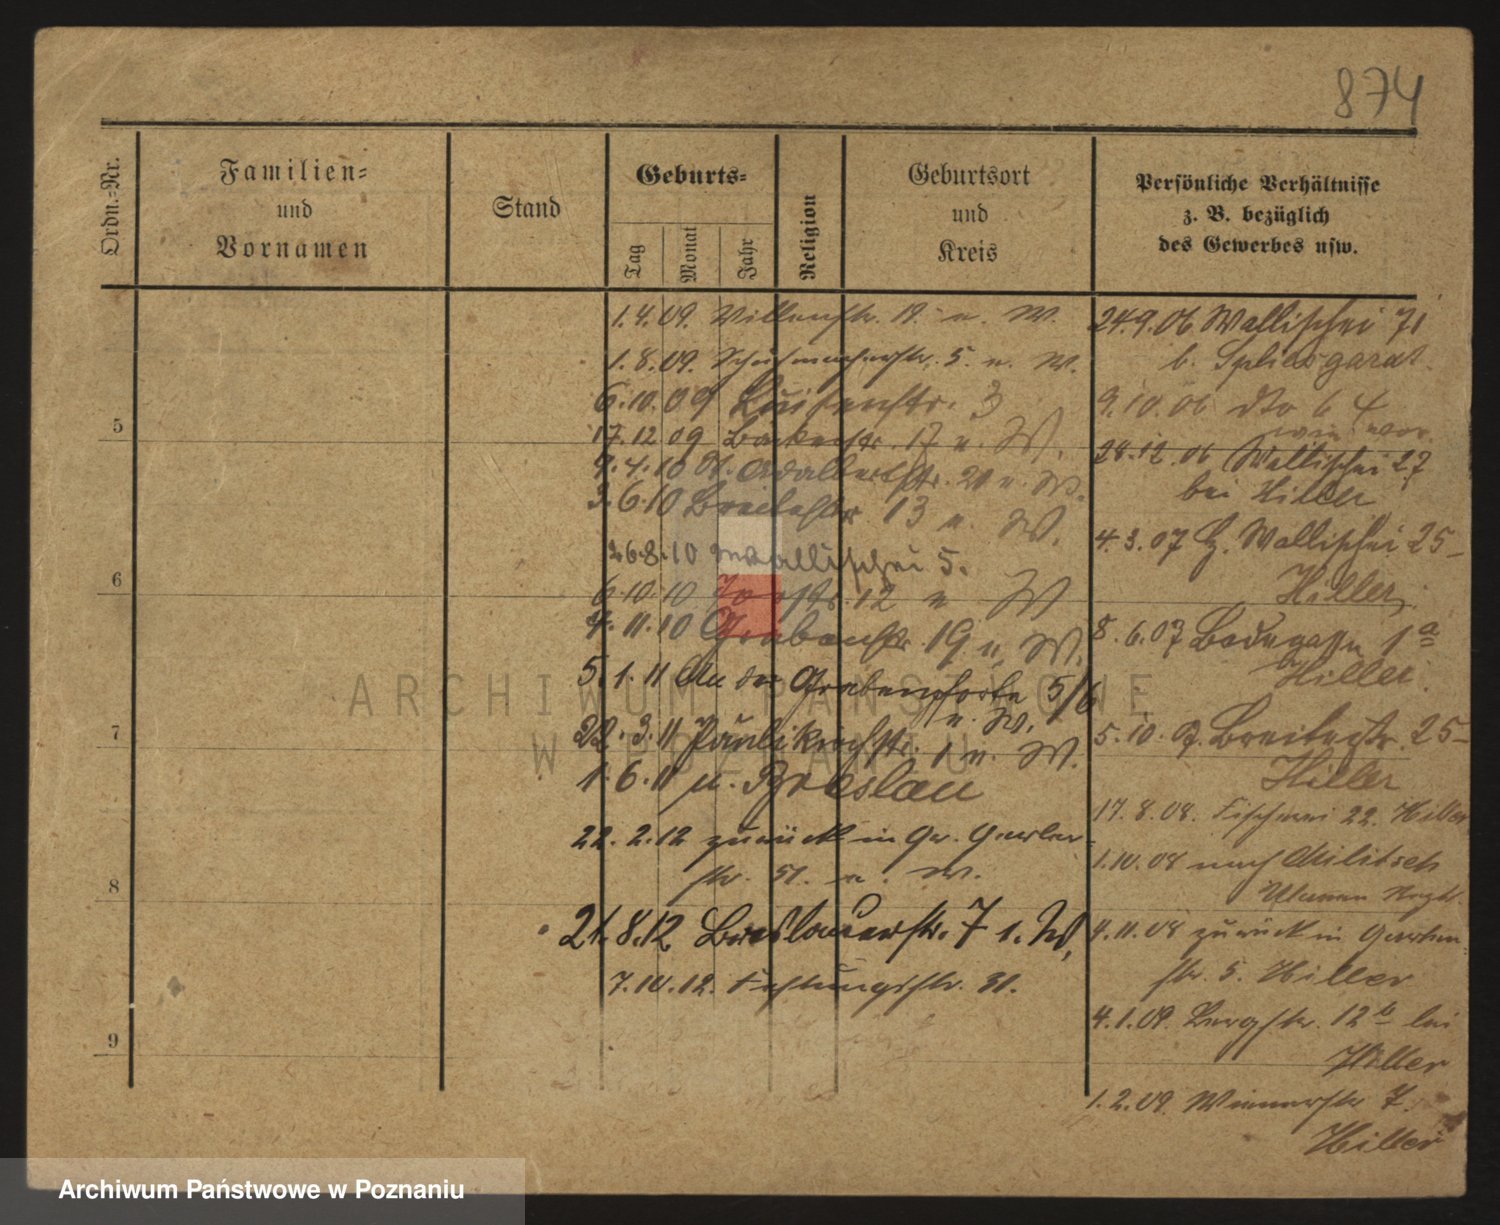 874
Ordn.-Nr.
Familien-
und
Vornamen
Stand
Geburts-
Tag
Monat
Jahr
Religion
Geburtsort
und
Kreis
Persönliche Verhältnisse
z. B. bezüglich
des Gewerbes usw.
1.4.09. Villenstr. 19. u. W.
1.8.09. Schuhmacherstr. 5. u. W.
6.10.09 Luisenstr. 3
17.12 09 Bäckerstr. 17 u. W.
9.4.10 St. Adalbertstr. 20 u. W.
3.6.10 Breitestr 13 u. W.
26.8.10 Wallischei 5.
6.10.10 Torstr. 12 u W
4.11.10 Grabenstr. 19 u. W.
5.1.11 An der Grabenpforte 5/6
u. W.
22.3.11 Paulikirchstr. 1 u. W.
1.6.11 n. Breslau
22.2.12 zurück in Gr. Gerber-
str. 51. u. W.
21.8.12 Breslauerstr. 7 u. W.
7.10.12. Festungsstr. 31.
24.9.06 Wallischei 71
b.
9.10.06 dto 64
wie vor
28.12.06 Wallischei 27
bei Hiller
4.3.07 Wallischei 25
Hiller
8.6.07 Badegasse 1a
b Hiller.
5.10.07. Breitestr. 25
Hiller
17.8.08. Fischerei 22. Hiller
1.10.08 nach Militsch
Ulanen Regt.
4.11.08 zurück in Garten
str. 5. Hiller
4.1.09. Bergstr. 12 b bei
Hiller
1.2.09. Wienerstr 7.
Hiller
5
6
7
8
9
ARCHIWUM PAŃSTWOWE
W POZNANIU
Archiwum Państwowe w Poznaniu